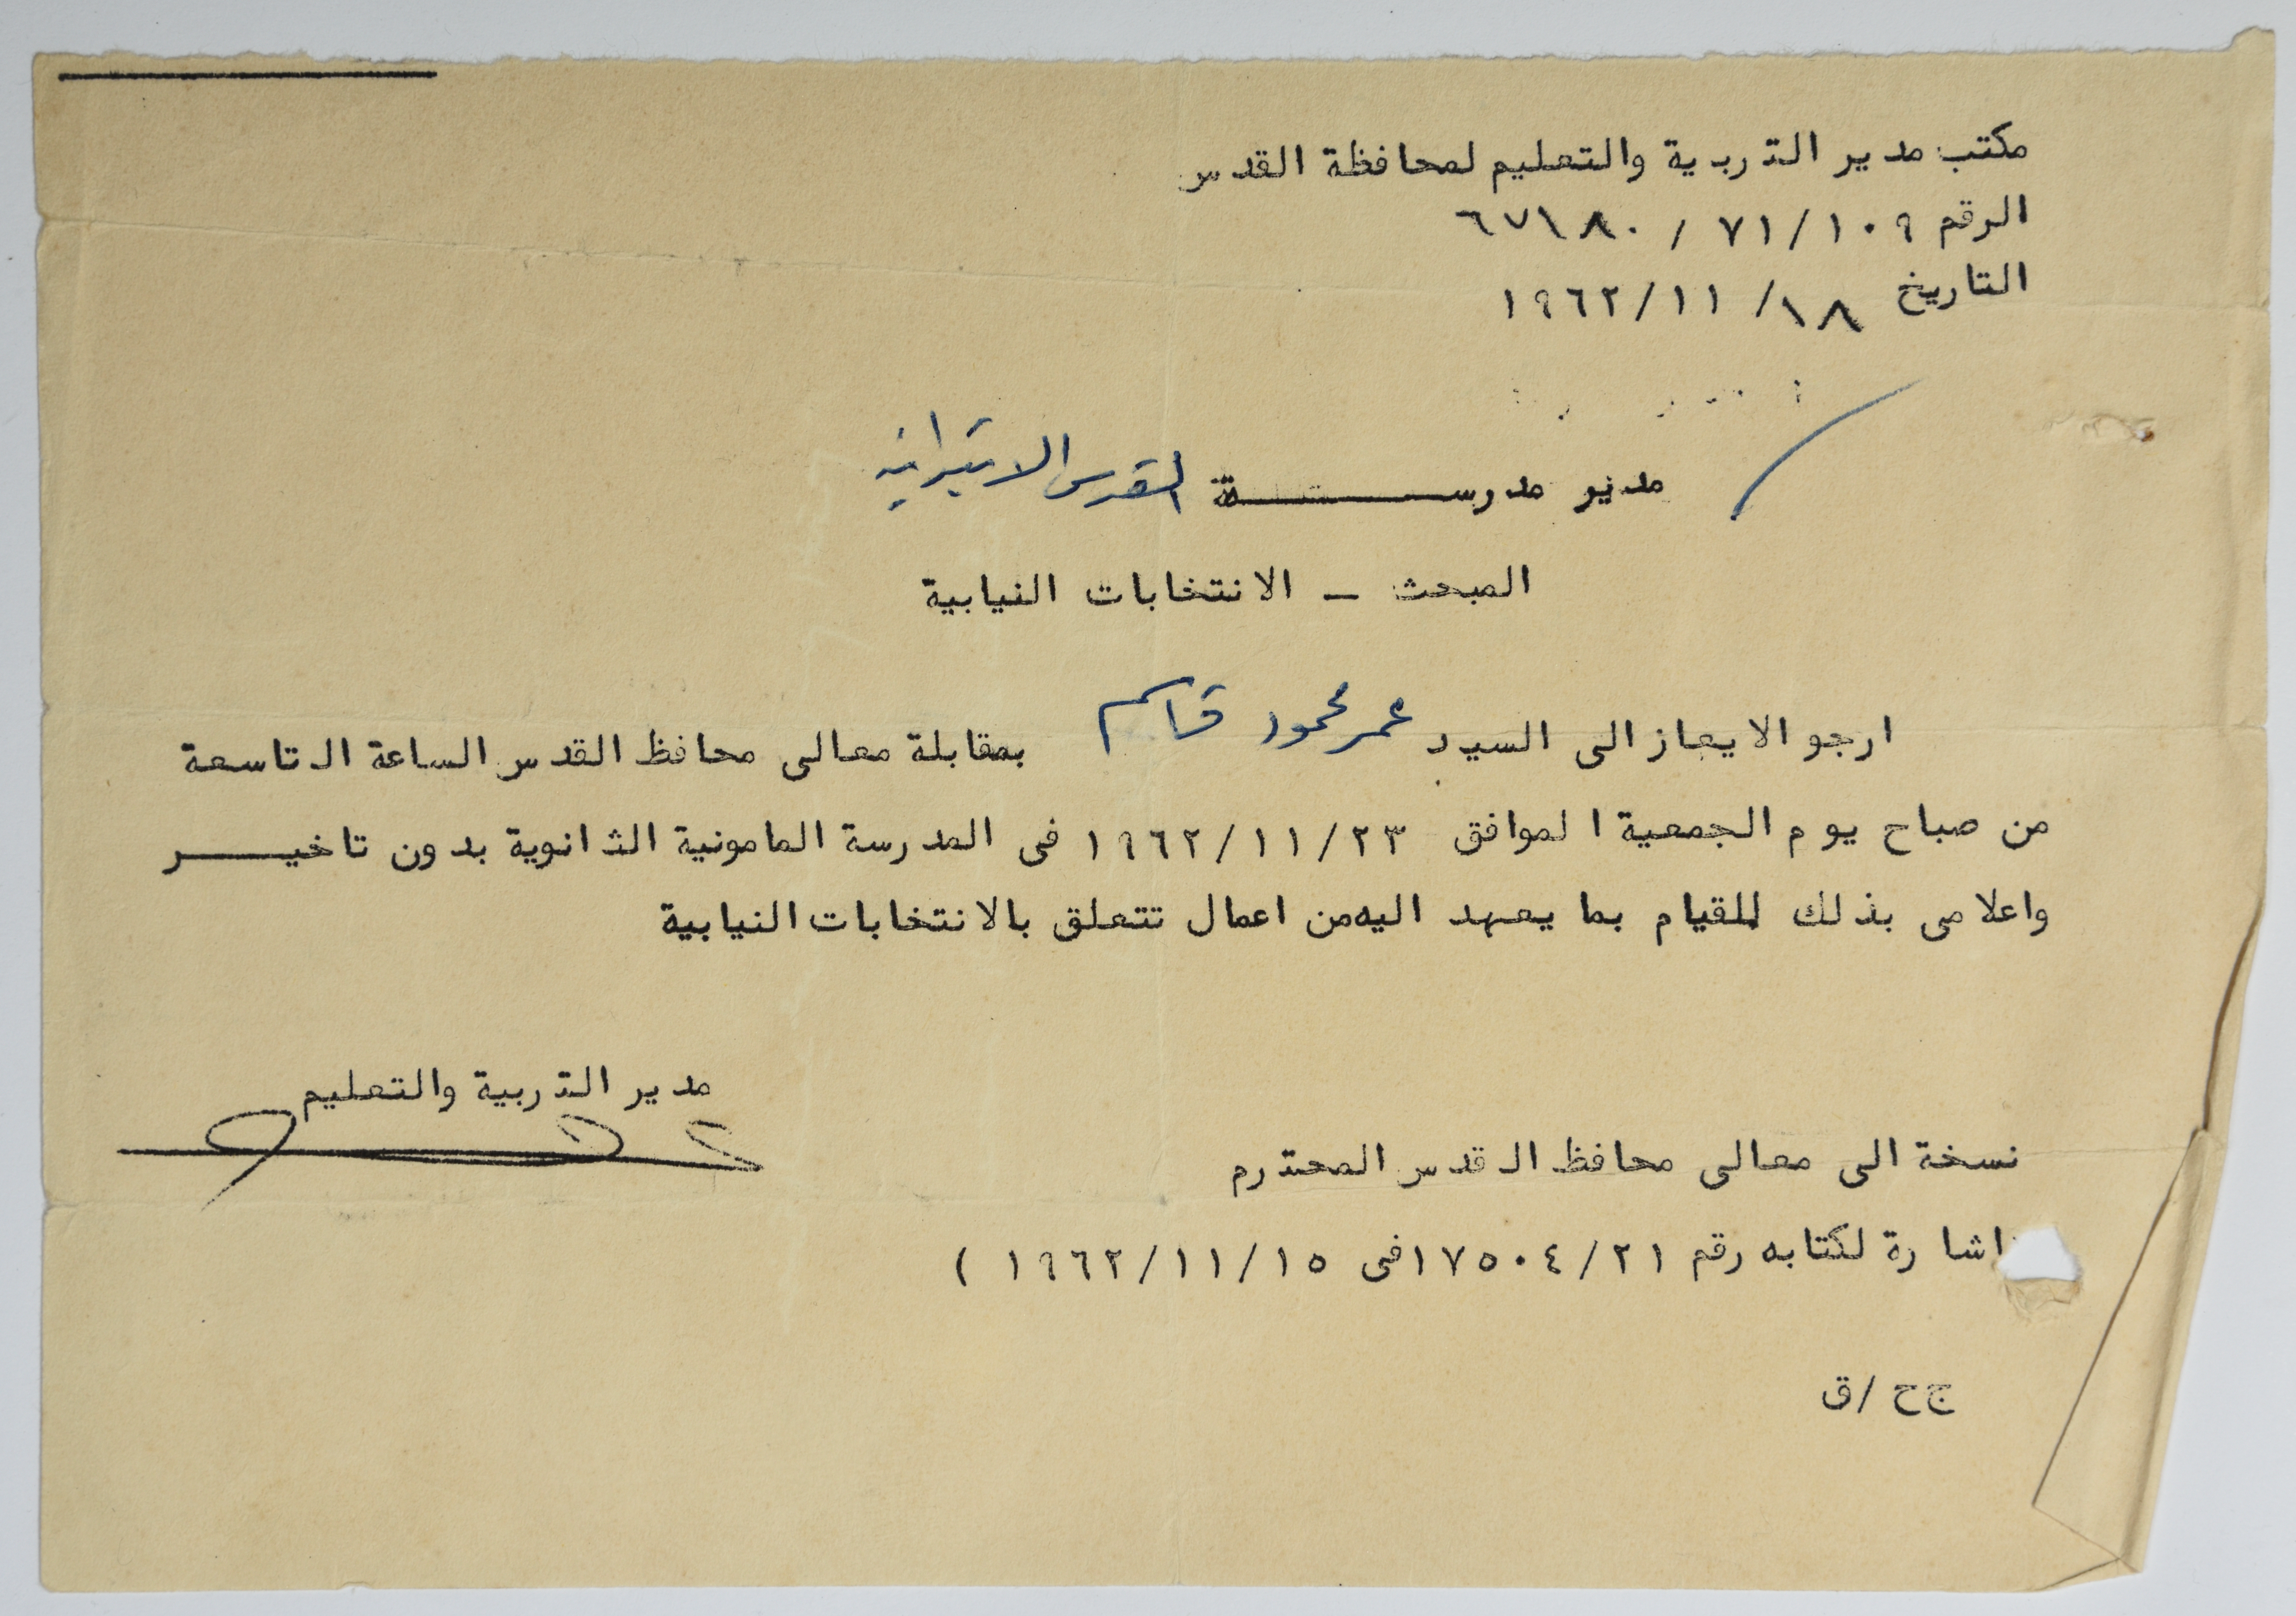 مكتب مدير التربية والتعليم لمحافظة القدس
الرقم ٧١/١٠٩ / ٦٧١٨٠
التاريخ ١٨/ ١٩٦٢/١١
مدير مدرســـــــــة القدس الابتدائيه
المبحث ــ الانتخابات النيابية
ارجو الايعاز الى السيد عمر محمود قاسم بمقابلة معالى محافظ القدس الساعة التاسعة
من صباح يوم الجمعية الموافق ١٩٦٢/١١/٢٣ فى المدرسة المامونية الثانوية بدون تاخيـــــر
واعلامى بذلك للقيام بما يعهد اليه من اعمال تتعلق بالانتخابات النيابية
مدير التربية والتعليم
نسخة الى معالى محافظ القدس المحترم
اشارة لكتابه رقم ١٧٥٠٤/٢١ فى ١٩٦٢/١١/١٥ )
ج ح /ق